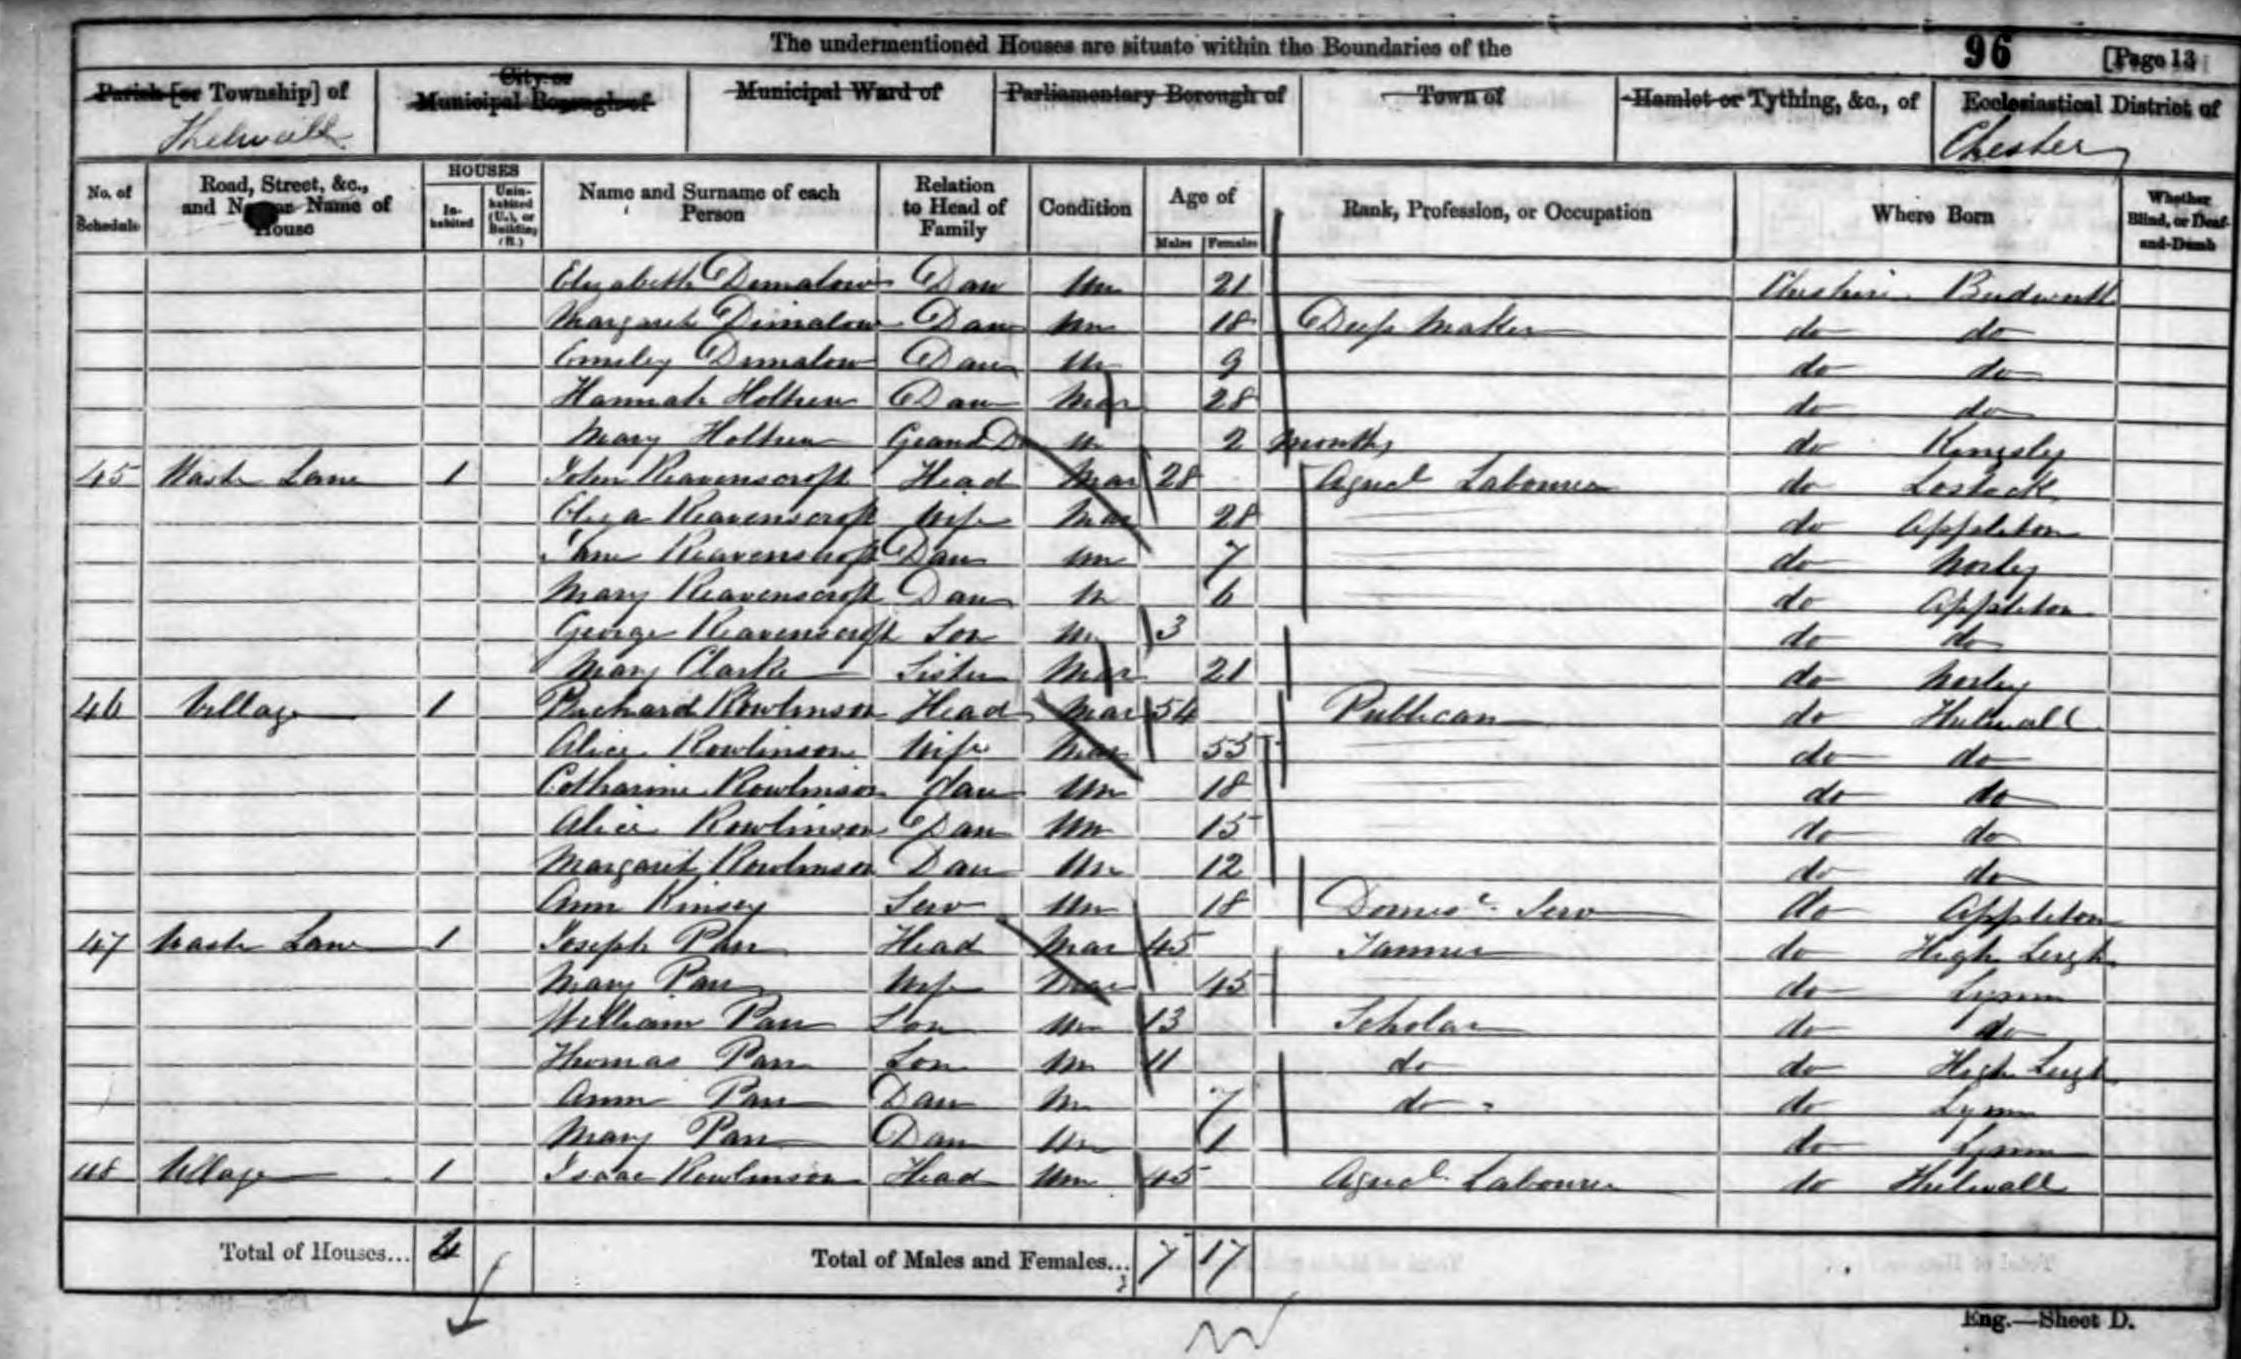 The undermentioned Houses are situate within the Boundaries of the 96 [Page 13
Parish [or Township] of City or Municipal Borough of Municipal Ward of Parliamentary Borough of Town of Hamlet or Tything, &c., of Ecclesiastical District of
Thelwall Chester
No. of Schedule Road, Street, &c., and No. or Name of House HOUSES Inhabited Uninhabited (U.), or Building (B.) Name and Surname of each Person Relation to Head of Family Condition Age of Males Females Rank, Profession, or Occupation Where Born Whether Blind, or Deaf-and-Dumb
Elizabeth Dimalow Dau Un 21 Cheshire Budworth
Margaret Dimalow Dau Un 18 Maker do do
Emiley Dimalow Dau Un 9 do do
Hannah Dau Mar 28 do do
Mary Grand D Un 2 months do Kingsley
45 Lane 1 John Reavenscroft Head Mar 28 Agricl Labourer do Lostock
Eliza Reavenscroft Wife Mar 28 do Appleton
Jane Reavenscroft Dau Un 7 do Norley
Mary Reavenscroft Dau Un 6 do Appleton
George Reavenscroft Son Un 3 do do
Mary Clarke Sister Mar 21 do Norley
46 Village 1 Richard Rowlinson Head Mar 54 Publican do Thelwall
Alice Rowlinson Wife Mar 53 do do
Catharine Rowlinson Dau Un 18 do do
Alice Rowlinson Dau Un 15 do do
Margaret Rowlinson Dau Un 12 do do
Ann Kinsey Serv Un 18 Domesc. Serv do Appleton
47 Lane 1 Joseph Parr Head Mar 45 Tanner do High Leigh
Mary Parr Wife Mar 45 do Lymm
William Parr Son Un 13 Scholar do do
Thomas Parr Son Un 11 do do High Leigh
Ann Parr Dau Un 7 do do Lymm
Mary Parr Dau Un 1 do Lymm
48 Village 1 Isaac Rowlinson Head Un 45 Agricl Labourer do Thelwall
Total of Houses... 4 Total of Males and Females... 7 17
Eng.—Sheet D.